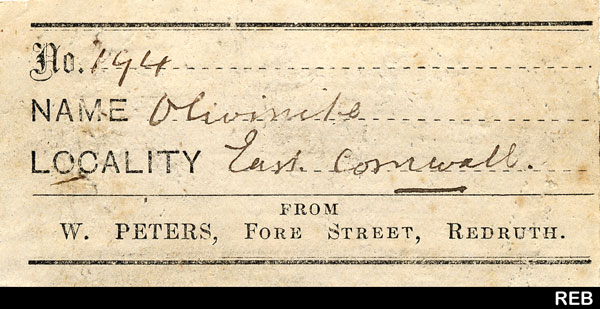 No. 194
NAME Olivinite
LOCALITY East Cornwall.
FROM
W. PETERS, FORE STREET, REDRUTH.
REB